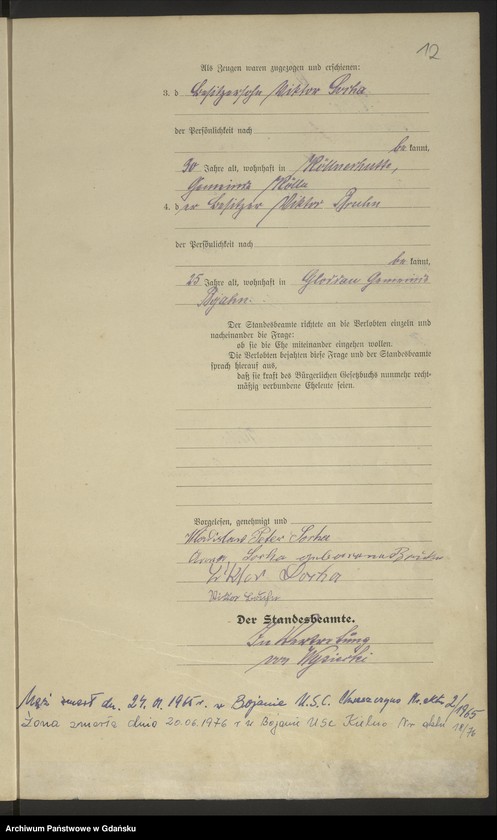 12
Als Zeugen waren zugezogen und erschienen:
3. d Besitzersohn Viktor Sorha
der Persönlichkeit nach
be kannt,
30 Jahre alt, wohnhaft in Köllnerhütte,
Gemeinde Kölln
4. der Besitzer Viktor
der Persönlichkeit nach
be kannt,
25 Jahre alt, wohnhaft in Gemeinde
Bojahn.
Der Standesbeamte richtete an die Verlobten einzeln und
nacheinander die Frage:
ob sie die Ehe miteinander eingehen wollen.
Die Verlobten bejahten diese Frage und der Standesbeamte
sprach hierauf aus,
daß sie kraft des Bürgerlichen Gesetzbuchs nunmehr recht-
mäßig verbundene Eheleute seien.
Vorgelesen, genehmigt und
Peter Sorha
Anna Sorha geborene
Viktor Sorha
Viktor
Der Standesbeamte.
In Vertretung
von
Mąż zmarł dn. 24. 01. 1965 r. w Bojanie U.S.C. Nr. aktu 2/1965
Żona zmarła dnia 20.06.1976 r w Bojanie USC Nr aktu 18/76
Archiwum Państwowe w Gdańsku